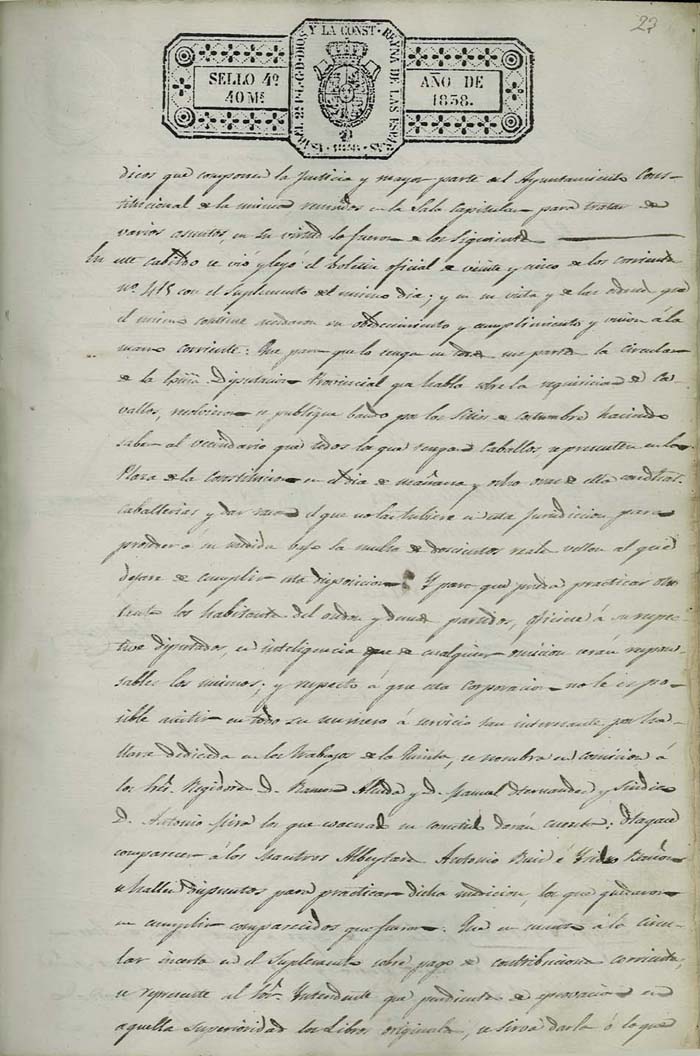 23
ISABEL 2ª P. L. G. D. DIOS Y LA CONST. REYNA DE LAS ESPAÑAS
SELLO 4º
40 Mˢ
AÑO DE
1838.
1838
dicos que componen la Justicia y mayor parte del Ayuntamiento Cons-
titucional de la misma reunidos en la Sala Capitular para tratar de
varios asuntos, en su virtud lo fueron de los siguientes
En este cabildo se vió y leyó el boletin oficial de veinte y cinco de los corrientes
nº 415 con el Suplemento del mismo dia; y en su vista y de las ordenes que
el mismo contiene acordaron su obedecimiento y cumplimiento y union á la
mano corriente: Que para que lo tenga en todas sus partes la circular
de la Diputacion Provincial que habla sobre la requisicion de Ca-
vallos, resolvieron se publique bando por los Sitios de costumbre haciendo
saber al vecindario que todos los que tengan Caballos se presenten en la
Plaza de la Constitucion en el dia de mañana y ocho de ella con
caballerias y dar razon el que no las tubiere en esta Jurisdicion para
proceder á su medida bajo la multa de doscientos reales vellon al que
dejare de cumplir esta disposicion: Y para que puedan practicar otro
tanto los habitantes del y demas partidos, oficiese á su respec-
tivos diputados, en inteligencia que de cualquier omision seran respon-
sables los mismos; y respecto á que esta corporacion no le es po-
sible asistir en todo su numero á servicio tan interesante por ha-
llarse dedicada en los trabajos de la Quinta, se nombra en comision á
los Sres. Regidores D. Ramon y D. Manuel Hernandez y Sindico
D. Antonio Mira los que evacuada su comision darán cuenta: Hagase
comparecer á los Maestros Albeytares Antonio Ruiz é Ramon
se hallen dispuestos para practicar dicha medicion, los que quedaron
en cumplir comparecidos que fueron: Que en cuanto á la circu-
lar inserta en el Suplemento sobre pago de contribuciones corrientes,
se represente al Sor. Intendente que pendientes de aprovacion en
aquella Superioridad los Libros originales, se sirva darla ó lo que